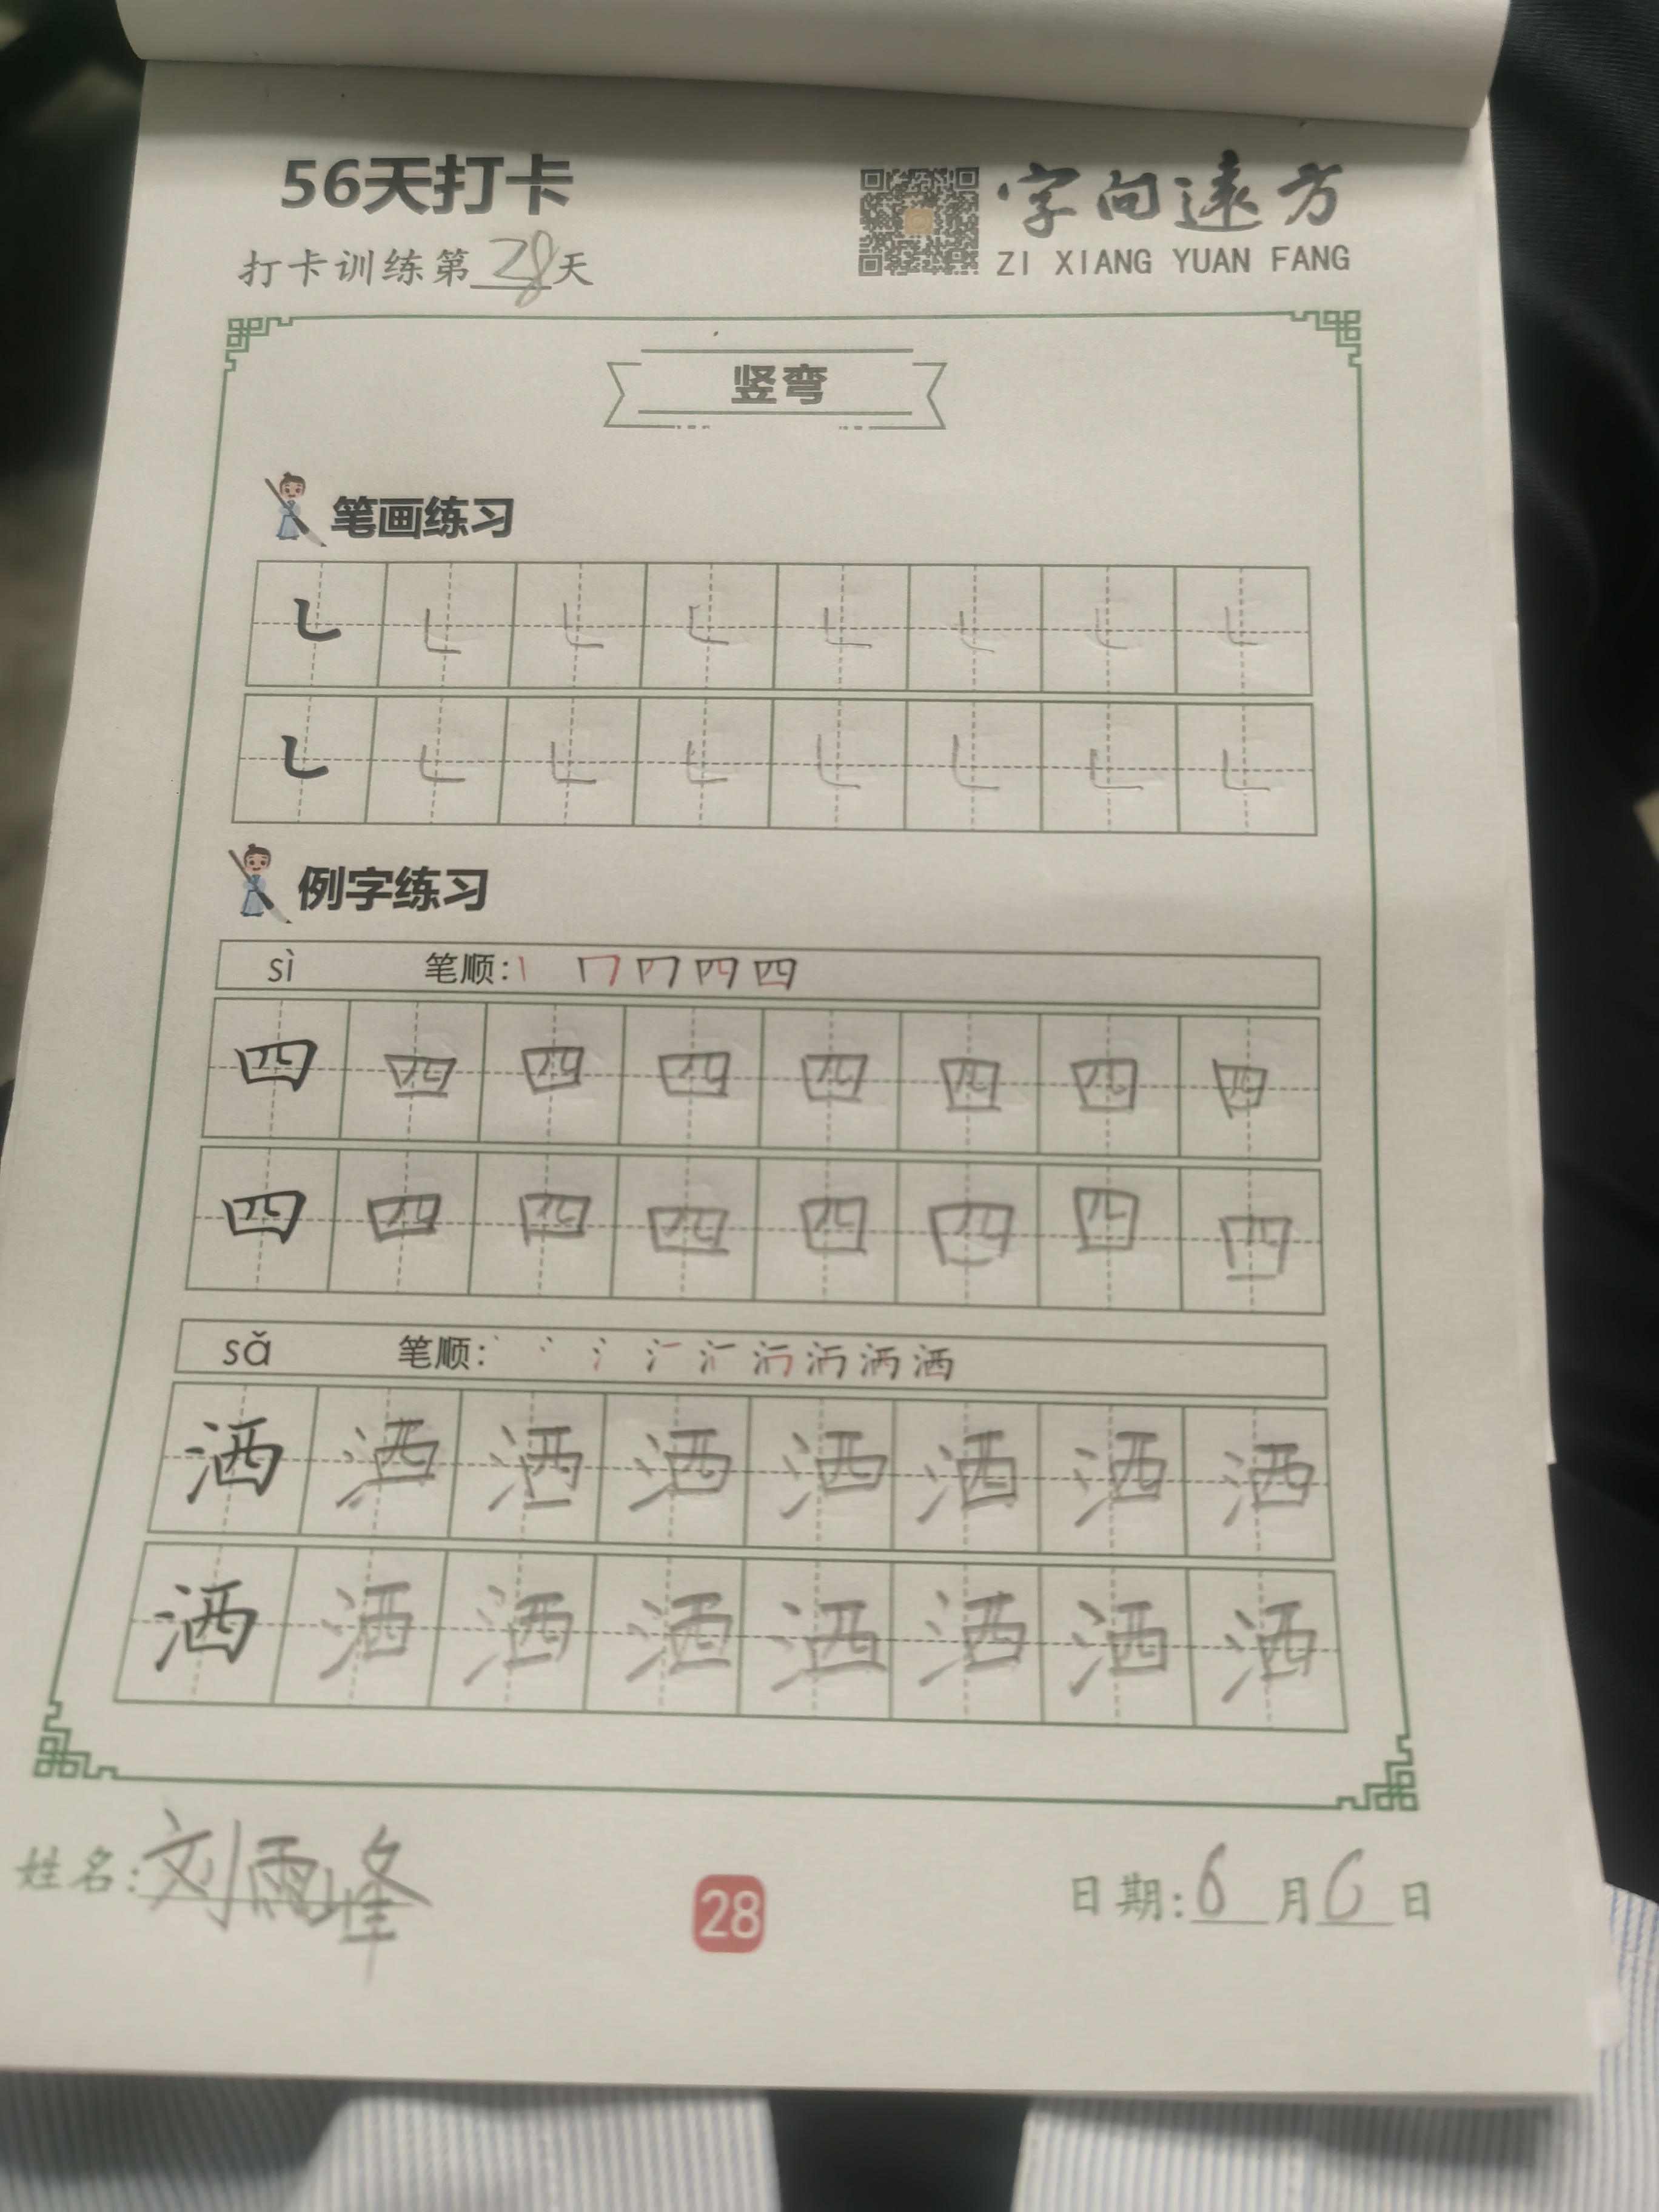 56天打卡
字向远方
ZI XIANG YUAN FANG
打卡训练第28天
竖弯
笔画练习
㇄ ㇄ ㇄ ㇄ ㇄ ㇄ ㇄ ㇄
㇄ ㇄ ㇄ ㇄ ㇄ ㇄ ㇄ ㇄
例字练习
sì 笔顺:
四 四 四 四 四 四 四 四
四 四 四 四 四 四 四 四
sǎ 笔顺:
洒 洒 洒 洒 洒 洒 洒 洒
洒 洒 洒 洒 洒 洒 洒 洒
姓名:刘雨峰
28
日期:6月6日